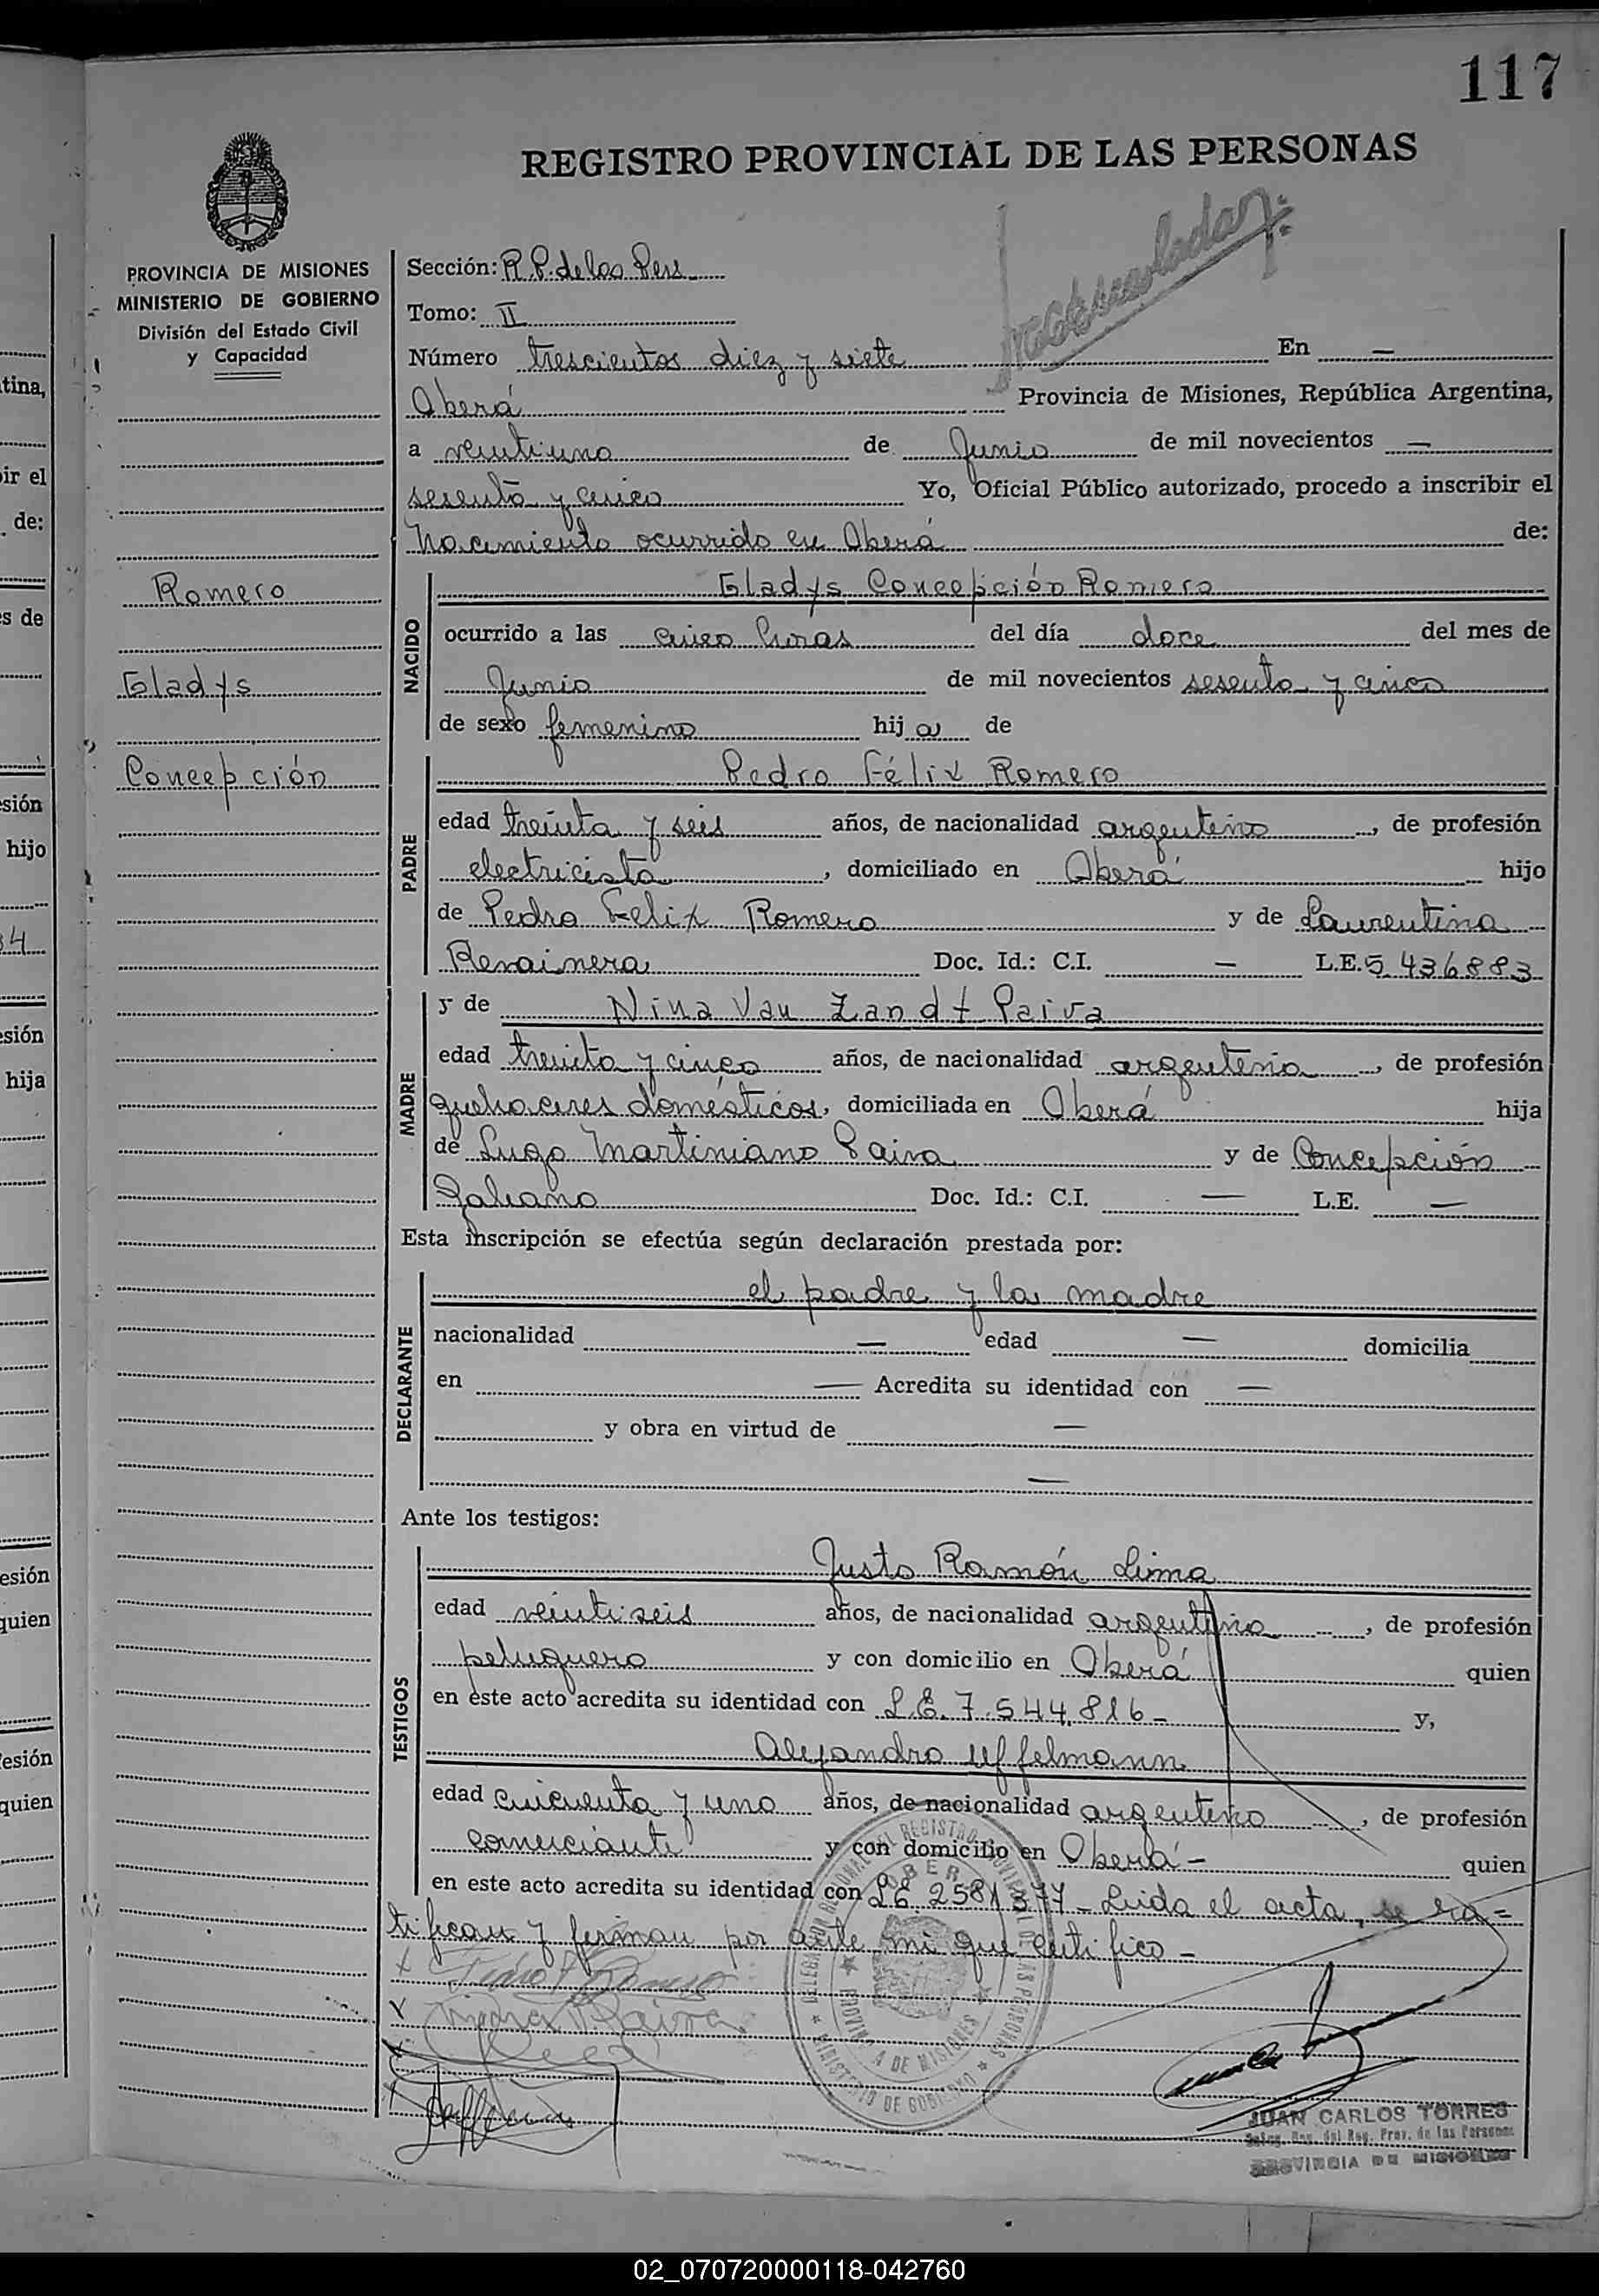 117
REGISTRO PROVINCIAL DE LAS PERSONAS
PROVINCIA DE MISIONES
MINISTERIO DE GOBIERNO
División del Estado Civil
y Capacidad
Romero
Gladys
Concepción
Sección: R. P. de las Pers
Tomo: II
Número trescientos diez y siete En —
Oberá Provincia de Misiones, República Argentina,
a veintiuno de Junio de mil novecientos —
sesenta y cinco Yo, Oficial Público autorizado, procedo a inscribir el
Nacimiento ocurrido en Oberá de:
NACIDO
Gladys Concepción Romero
ocurrido a las cinco horas del día doce del mes de
Junio de mil novecientos sesenta y cinco
de sexo femenino hija de
PADRE
Pedro Félix Romero
edad treinta y seis años, de nacionalidad argentino, de profesión
electricista, domiciliado en Oberá hijo
de Pedro Felix Romero y de Laurentina
Doc. Id.: C.I. — L.E. 5.436883
MADRE
y de Nina Van Zandt Paiva
edad treinta y cinco años, de nacionalidad argentina, de profesión
quehaceres domésticos, domiciliada en Oberá hija
de Lugo Martiniano Paiva y de Concepción
Galeano Doc. Id.: C.I. — L.E. —
Esta inscripción se efectúa según declaración prestada por:
DECLARANTE
el padre y la madre
nacionalidad — edad — domicilia
en — Acredita su identidad con —
y obra en virtud de —
—
Ante los testigos:
TESTIGOS
Justo Ramón Lima
edad veintiseis años, de nacionalidad argentino, de profesión
peluquero y con domicilio en Oberá quien
en este acto acredita su identidad con L.E. 7.544.816- y,
Alejandro Uffelmann
edad cincuenta y uno años, de nacionalidad argentino, de profesión
comerciante y con domicilio en Oberá- quien
en este acto acredita su identidad con L.E. 2581377- Leida el acta, se ra=
tifican y firman por ante mi que certifico-
JUAN CARLOS TORRES
Deleg. Reg. del Reg. Prov. de las Personas
PROVINCIA DE MISIONES
02_070720000118-042760